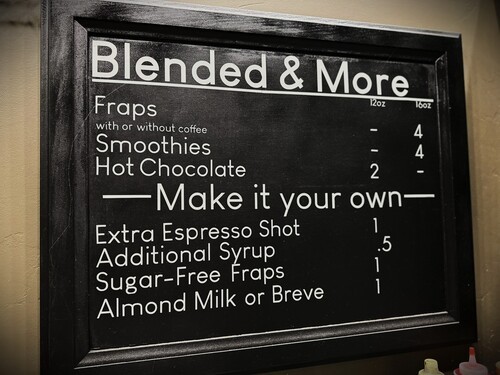 Blended & More
12oz 16oz
Fraps - 4
with or without coffee
Smoothies - 4
Hot Chocolate 2 -
Make it your own
Extra Espresso Shot 1
Additional Syrup .5
Sugar-Free Fraps 1
Almond Milk or Breve 1